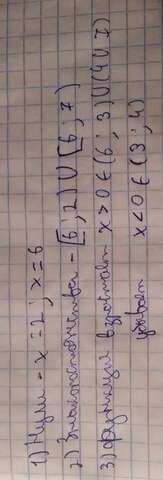 1) Нули - x = 2; x = 6
2) Знакопостоянства - [6; 2) ∪ [6, 7)
3) функция возрастает x > 0 ∈ (6; 3) ∪ (4 ∪ 7)
убывает x < 0 ∈ (3; 4)